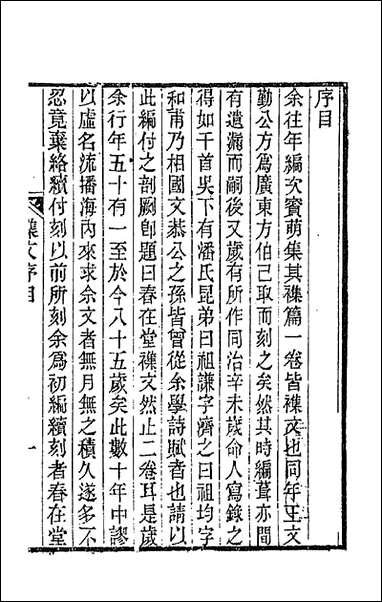 序目
余往年編次賓萌集其襍篇一卷皆襍文也同年王文
勤公方爲廣東方伯已取而刻之矣然其時編葺亦間
有遺漏而嗣後又歲有所作同治辛未歲命人寫錄之
得如千首吳下有潘氏昆弟曰祖謙字濟之曰祖均字
和甫乃相國文恭公之孫皆曾從余學詩賦者也請以
此編付之剖劂卽題曰春在堂襍文然止二卷耳是歲
余行年五十有一至於今八十五歲矣此數十年中謬
以虛名流播海內來求余文者無月無之積久遂多不
忍竟棄絡續付刻以前所刻余爲初編續刻者春在堂
襍文序目
一